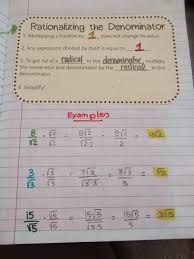 Rationalizing the Denominator
1. Multiplying a fraction by 1 does not change its value.
2. Any expression divided by itself is equal to 1.
3. To get rid of a radical in the denominator, multiply
the numerator and denominator by the radical in the
denominator.
4. Simplify!
Examples
8/√2 · √2/√2 = 8√2/√2·2 = 8√2/2 = 4√2
3/√3 · √3/√3 = 3√3/√3·3 = 3√3/3 = √3
15/√5 · √5/√5 = 15√5/√5·5 = 15√5/5 = 3√5